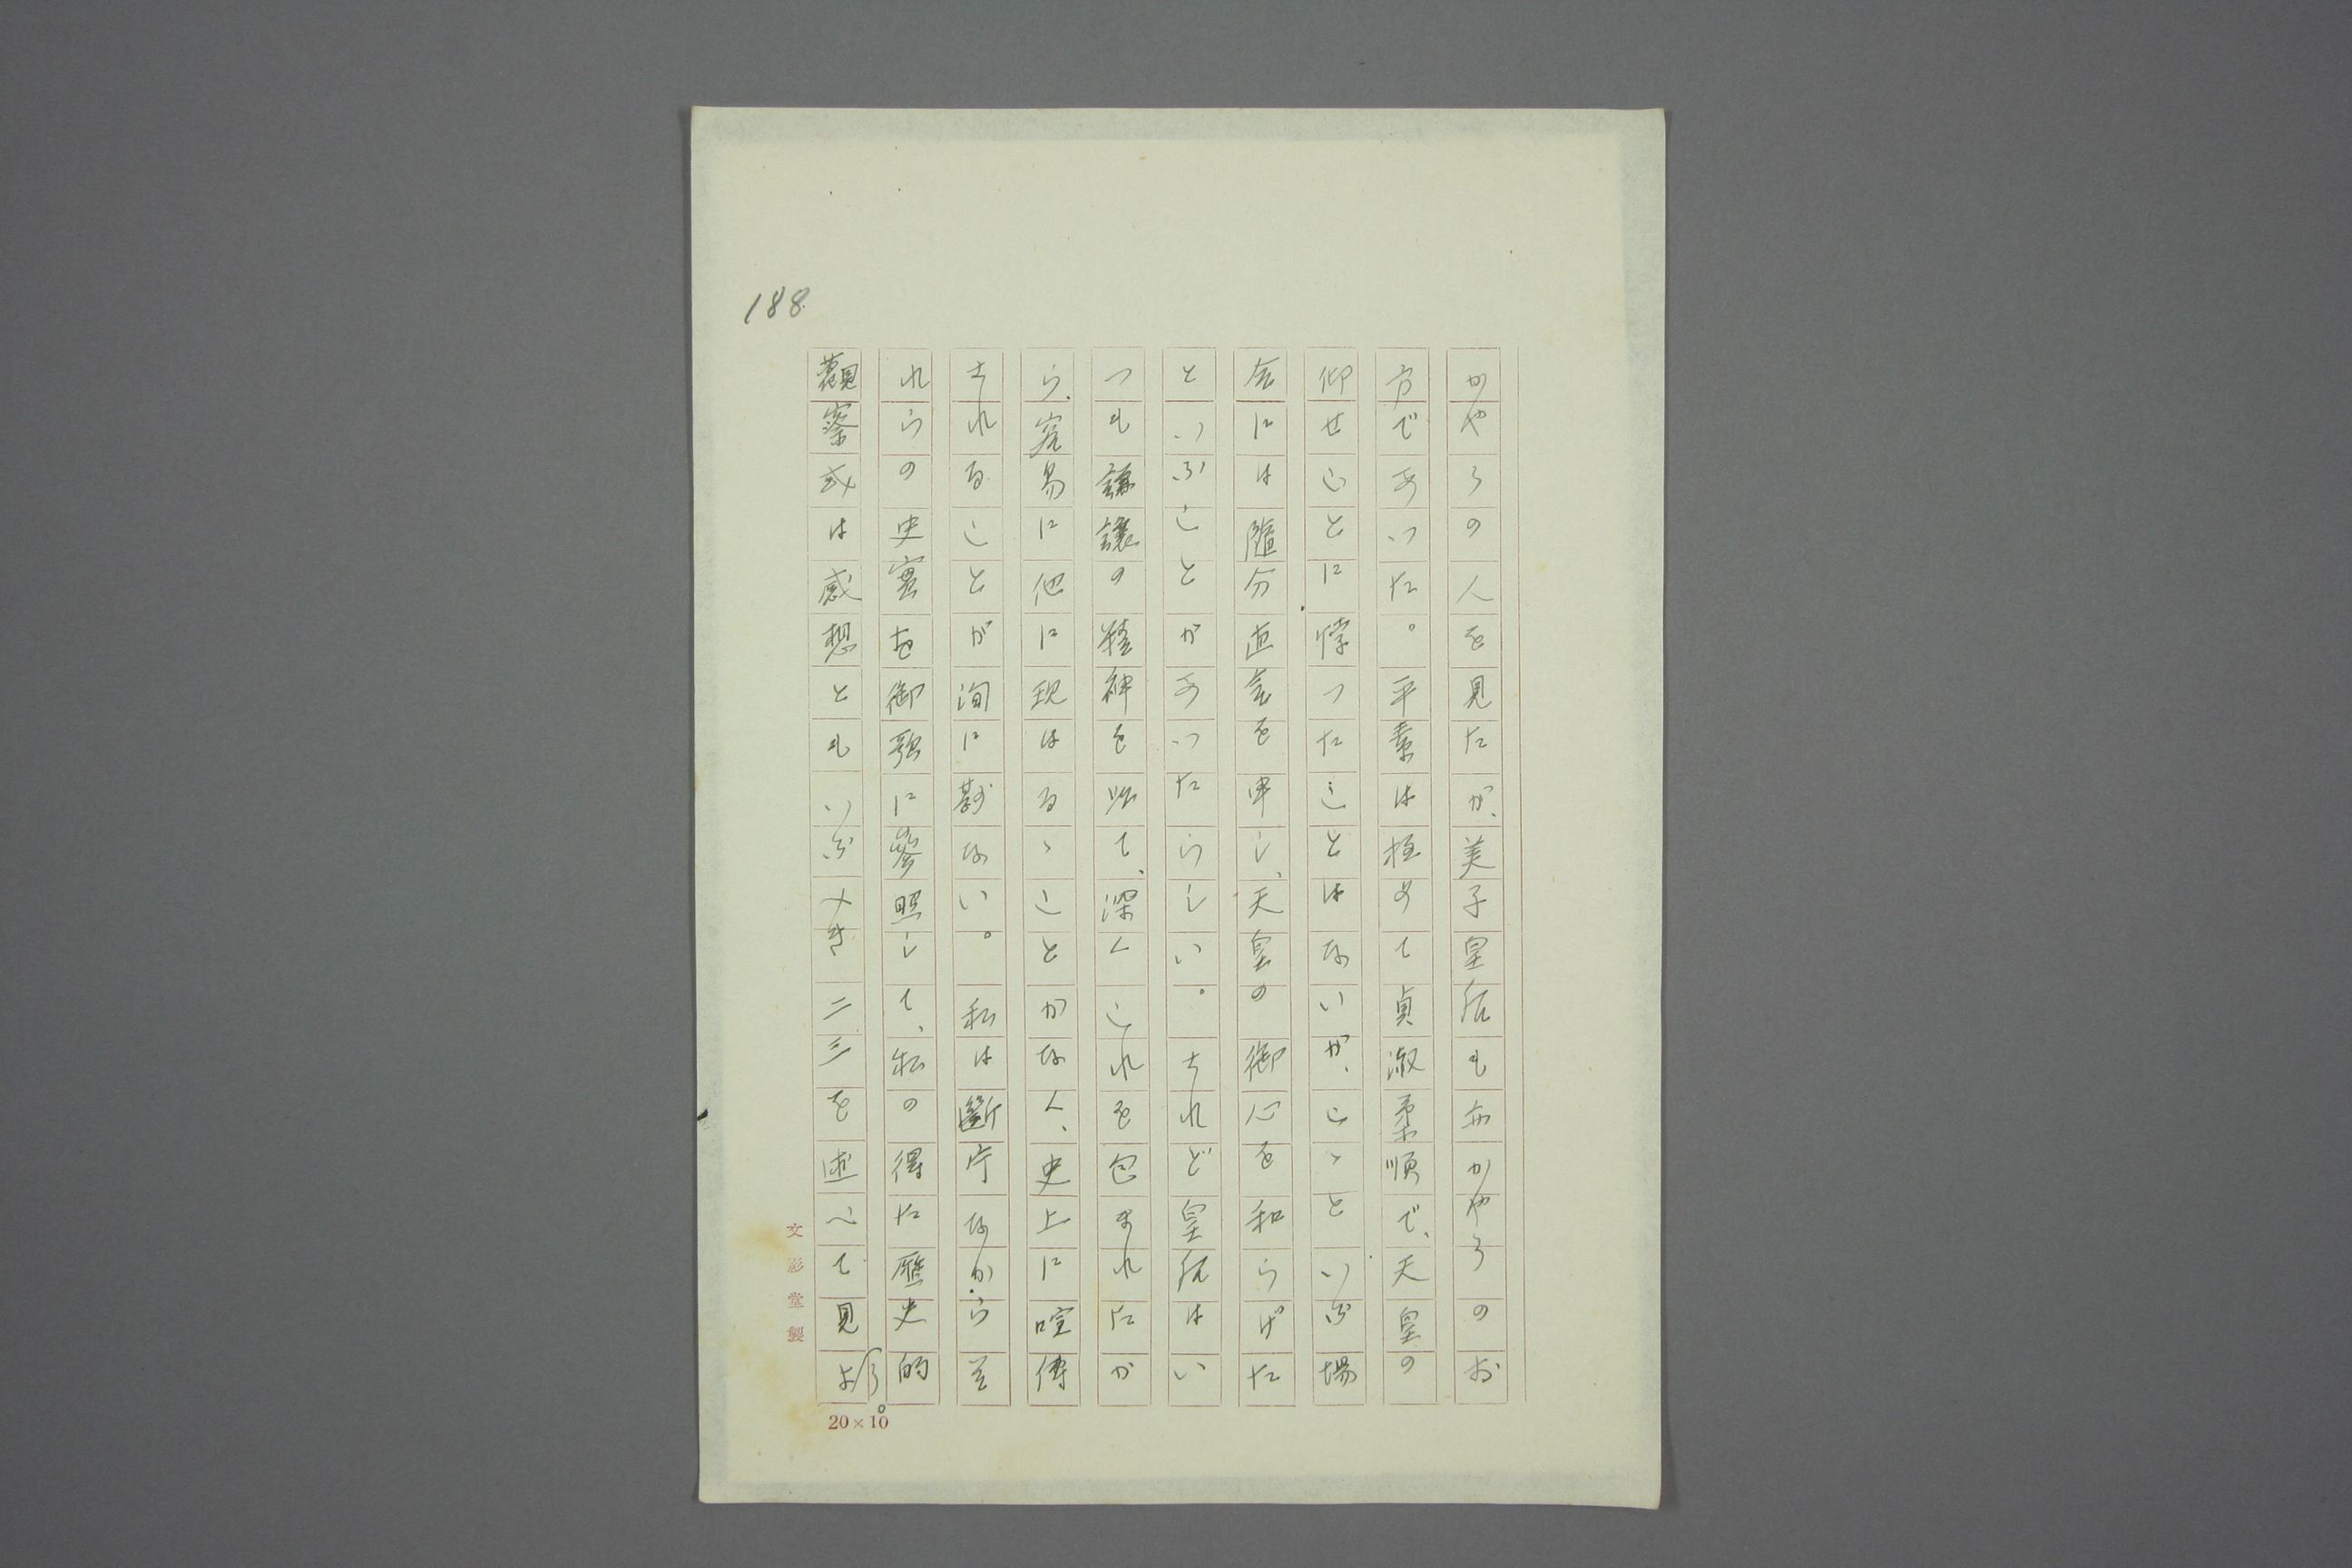 188.
かやうの人を見たが、美子皇后も亦かやうのお
方であつた。平素は極めて貞淑柔順で、天皇の
仰せごとに悖つたことはないが、こゝといふ場
合には隨分直言を申し、天皇の御心を和らげた
といふことがあつたらしい。されど皇后はい
つも謙讓の精神を以て、深くこれを包まれたか
ら、容易に他に現はるゝことがなく、史上に喧傳
されることが洵に尠ない。私は斷片ながら是
れらの史實を御歌に參照して、私の得た歷史的
觀察或は感想ともいふべき二三を述べて見よう。
文影堂製
20×10